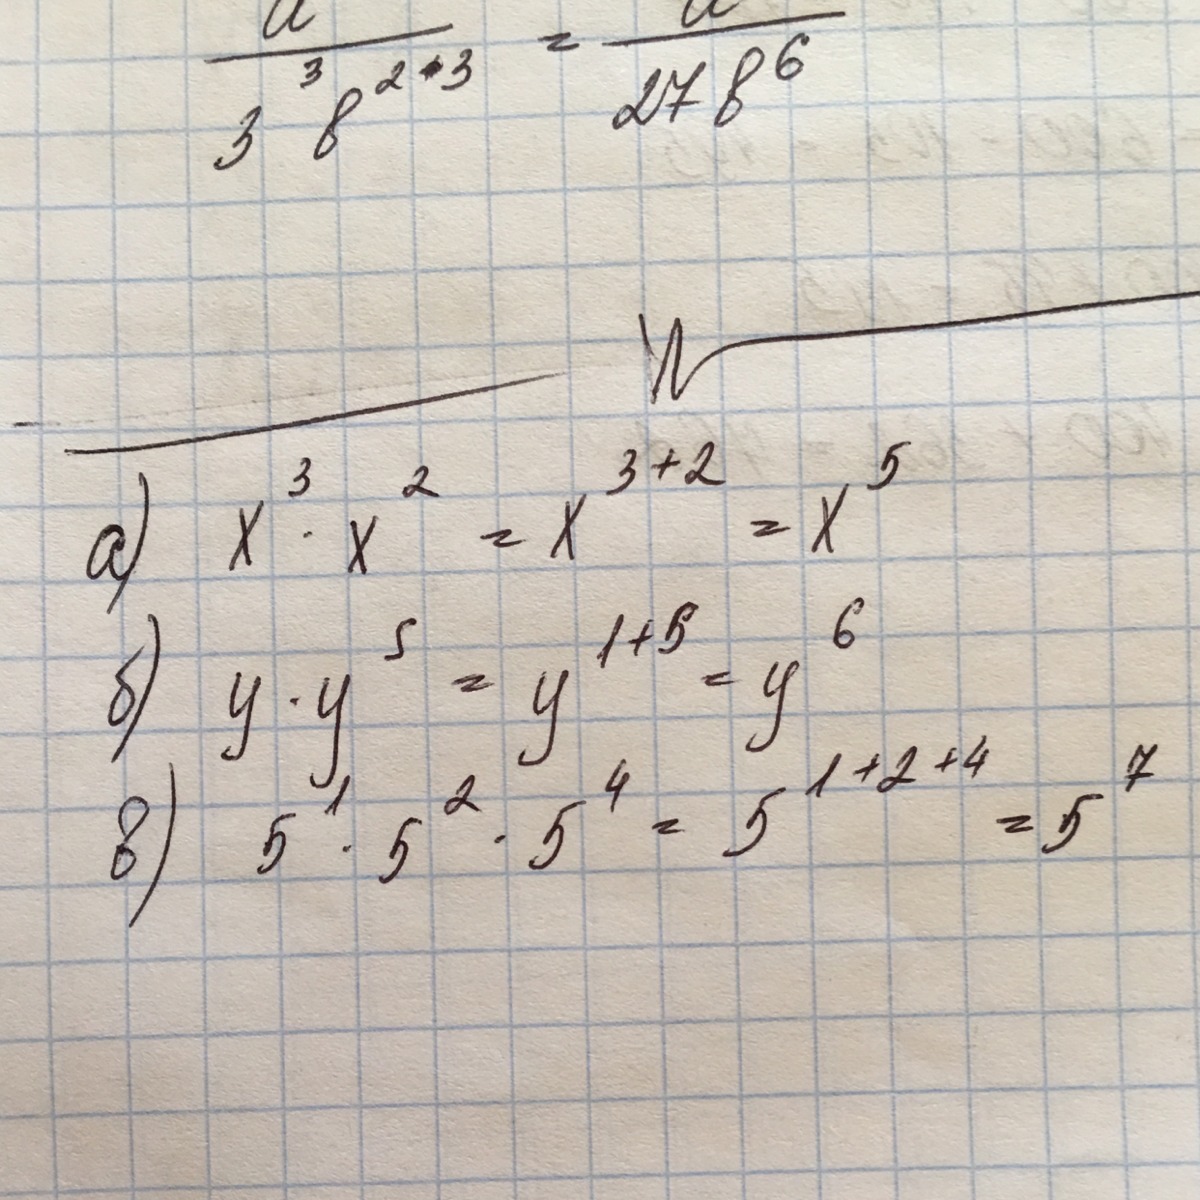 a / 3³ b²·³ = a / 27 b⁶
N
а) x³ · x² = x³⁺² = x⁵
б) y · y⁵ = y¹⁺⁵ = y⁶
в) 5¹ · 5² · 5⁴ = 5¹⁺²⁺⁴ = 5⁷